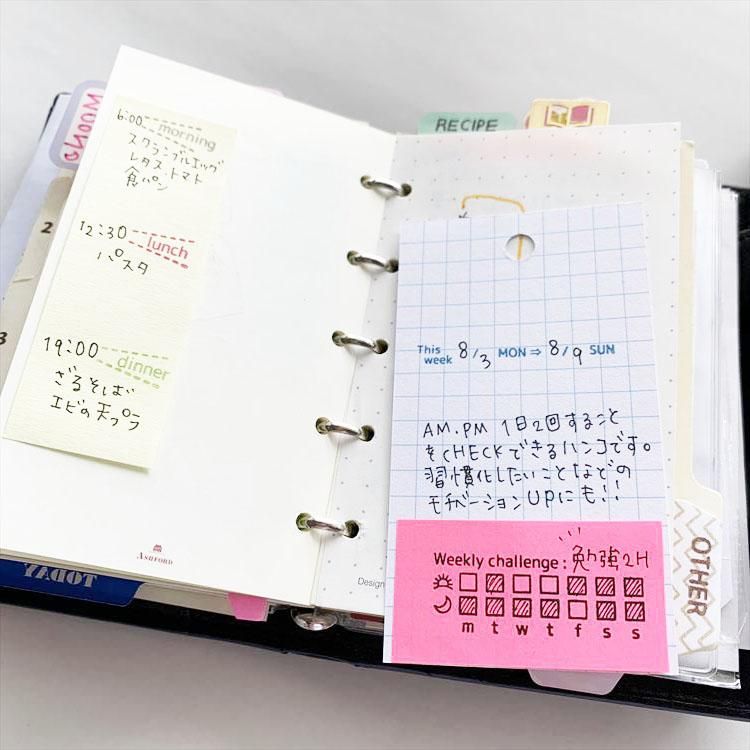 MOONO
6:00 morning
スクランブルエッグ
レタス・トマト
食パン
12:30 lunch
パスタ
19:00 dinner
ざるそば
エビの天プラ
2
3
ASHFORD
TODAY
RECIPE
This week 8/3 MON ⇒ 8/9 SUN
AM.PM 1日2回すること
をCHECKできるハンコです。
習慣化したいことなどの
モチベーションUPにも!!
Weekly challenge : 勉強2H
m t w t f s s
Design
OTHER